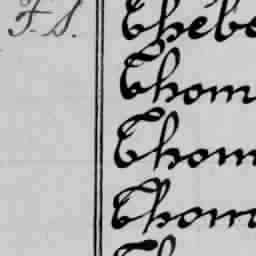 F. S. Thebe
Thom
Thom
Thom
Th